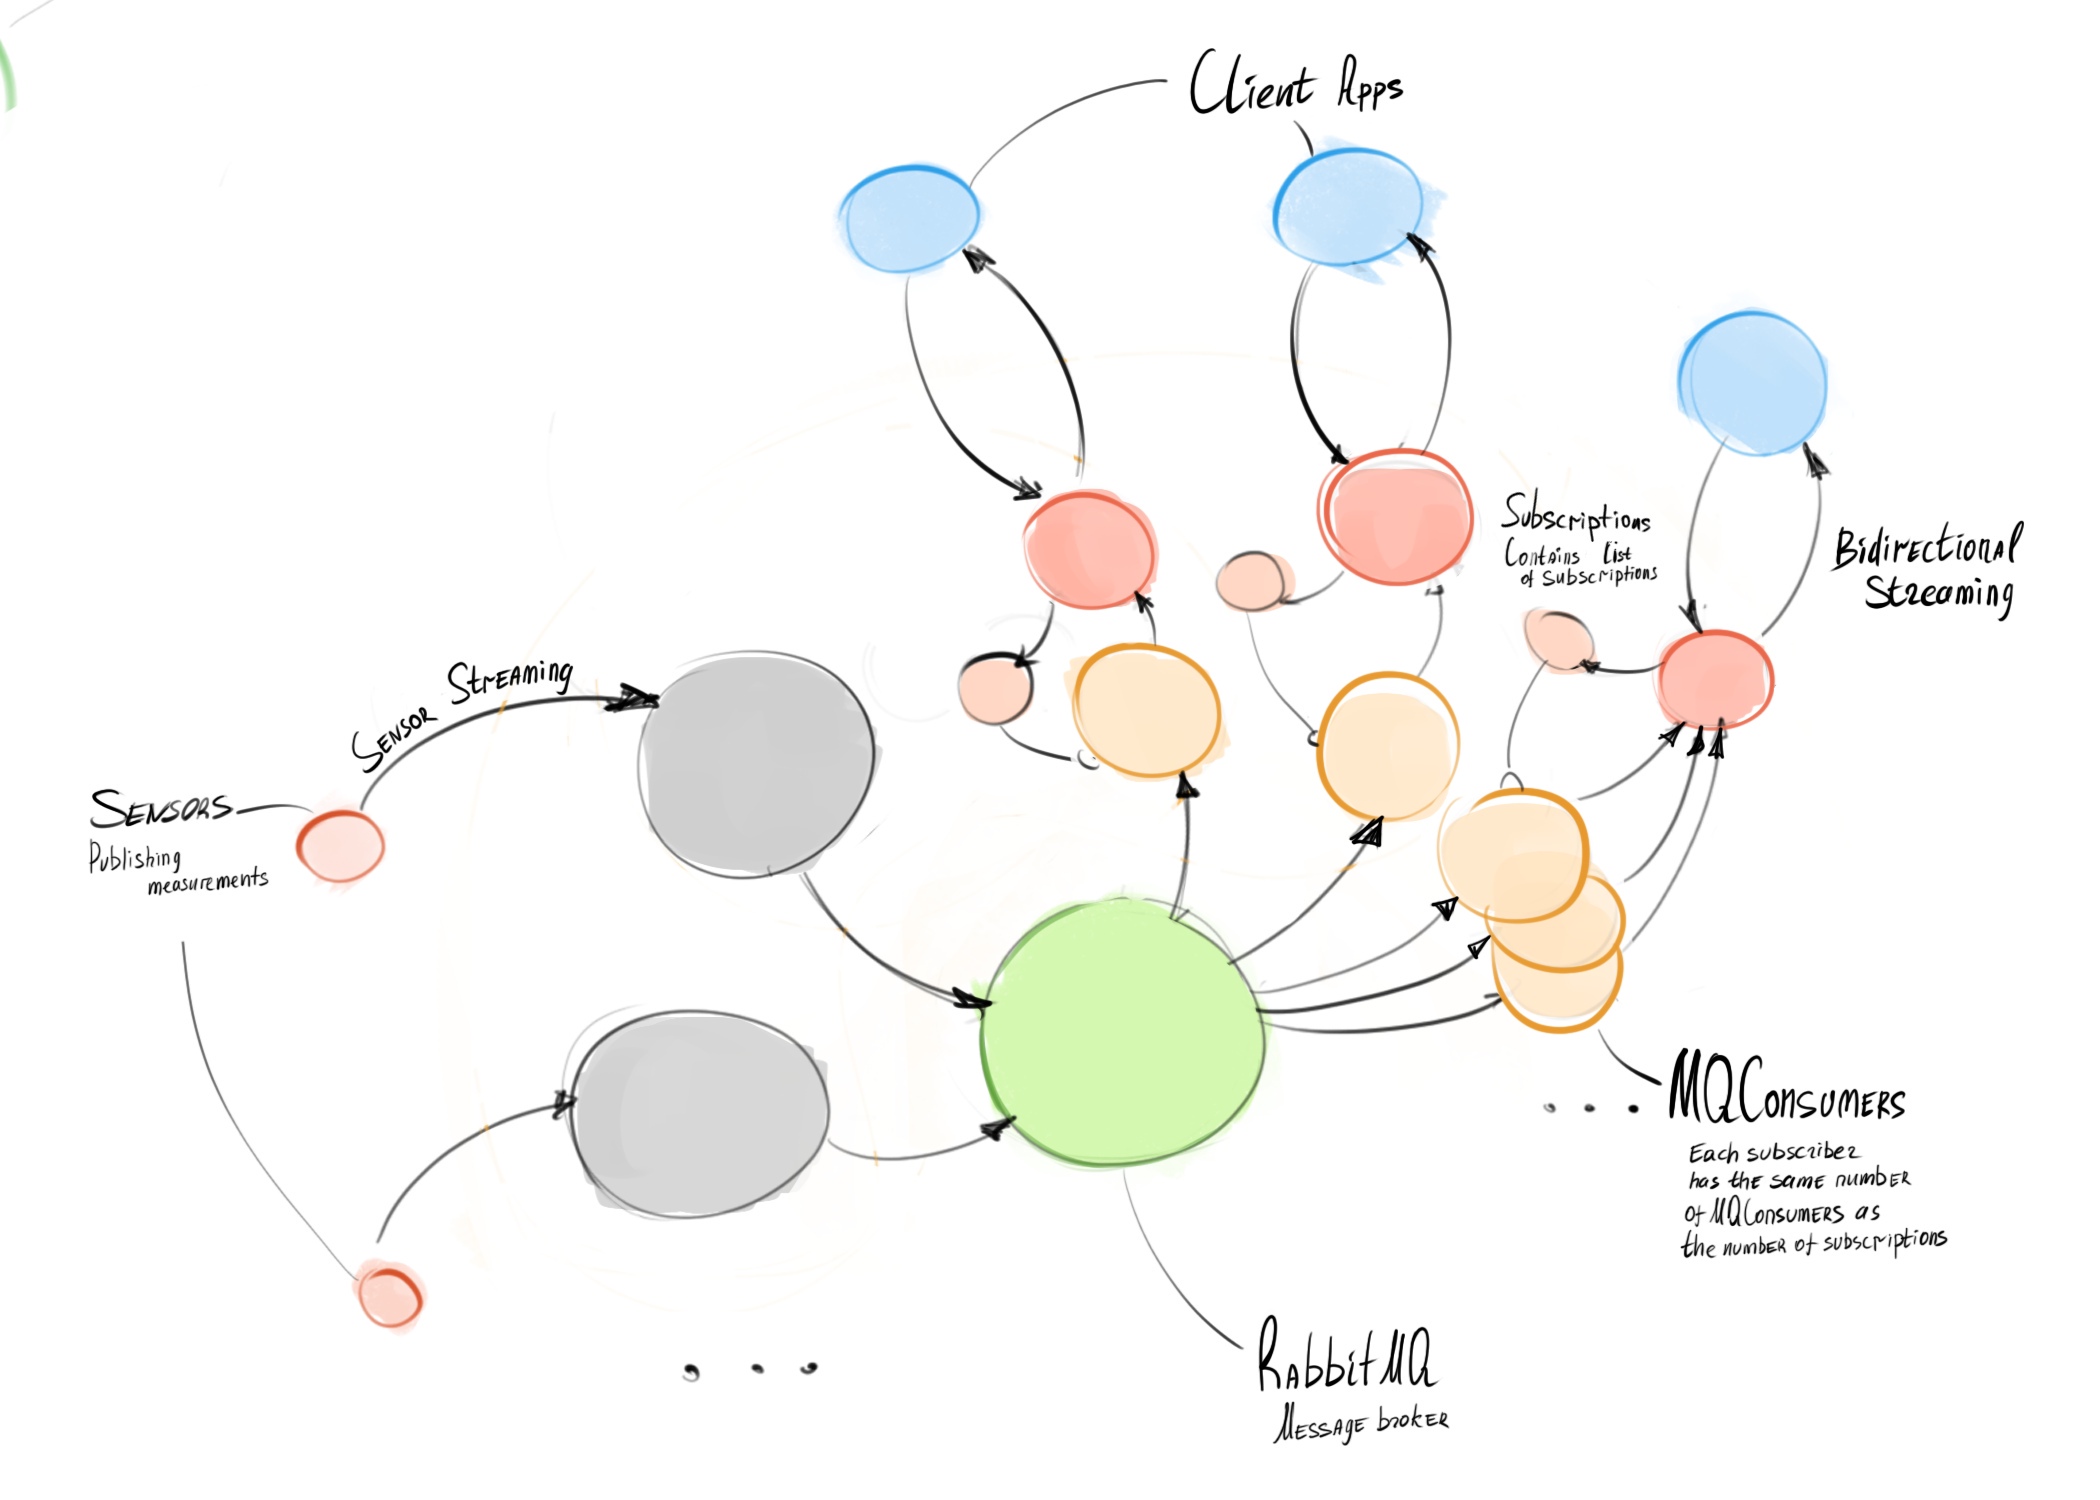 Client Apps
Subscriptions
Contains list
of subscriptions
Bidirectional
Streaming
Sensor Streaming
Sensors
Publishing
measurements
MQConsumers
Each subscriber
has the same number
of MQConsumers as
the number of subscriptions
RabbitMQ
Message broker